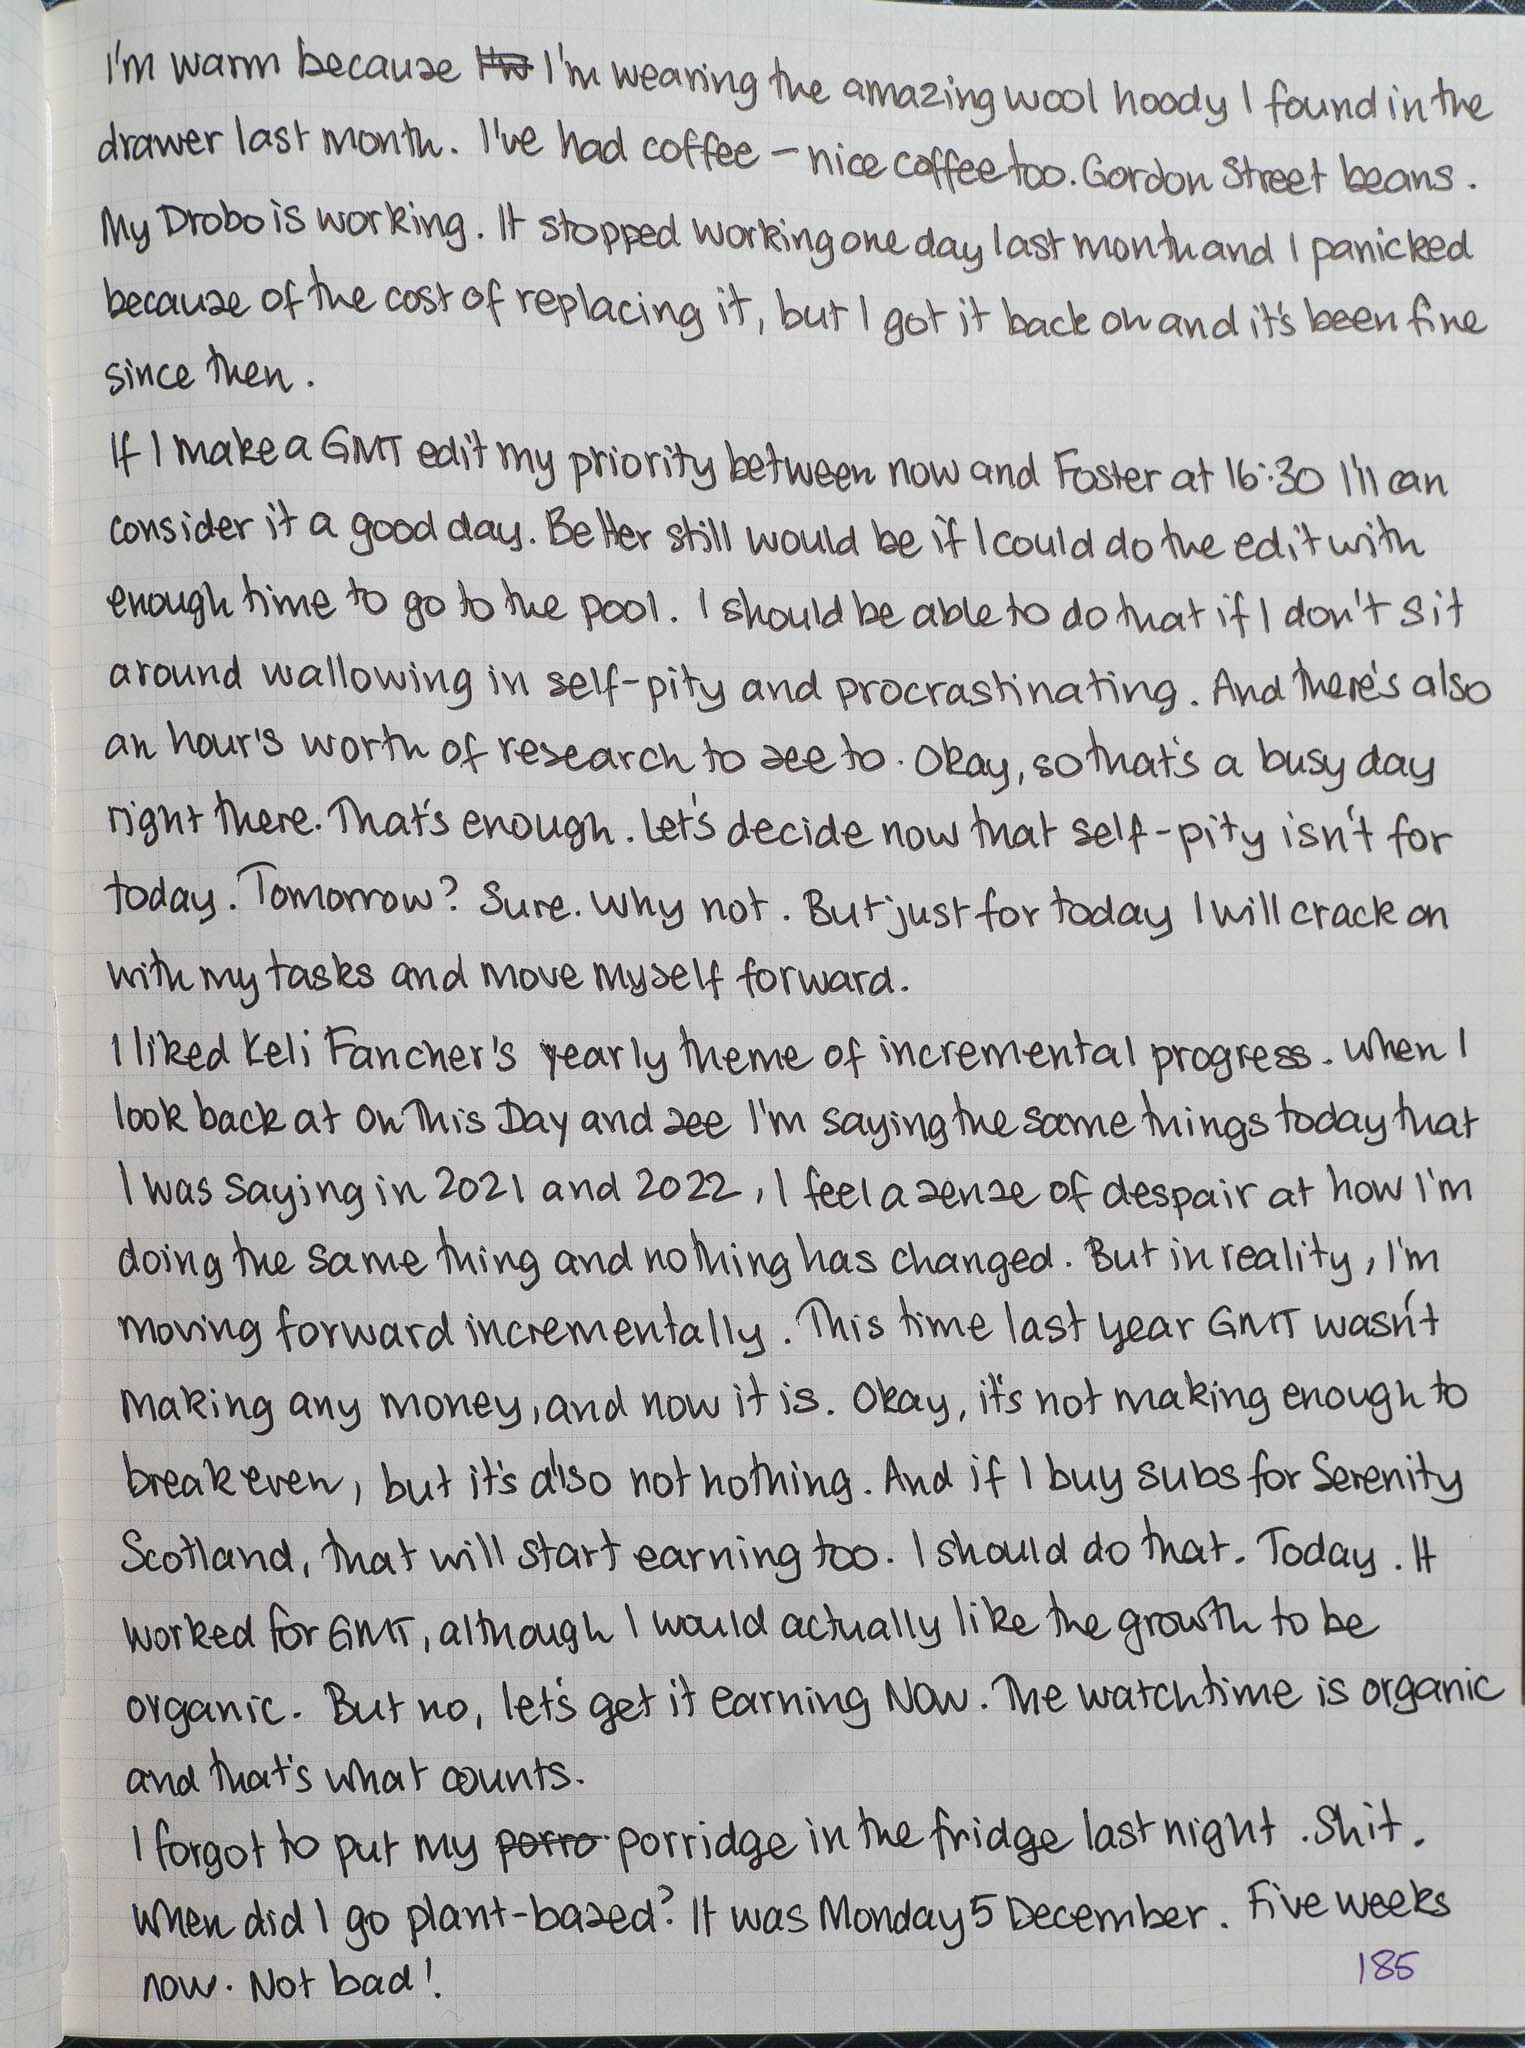 I'm warm because I'm wearing the amazing wool hoody I found in the
drawer last month. I've had coffee – nice coffee too. Gordon Street beans.
My Drobo is working. It stopped working one day last month and I panicked
because of the cost of replacing it, but I got it back on and it's been fine
since then.
If I make a GMT edit my priority between now and Foster at 16:30 I'll can
consider it a good day. Better still would be if I could do the edit with
enough time to go to the pool. I should be able to do that if I don't sit
around wallowing in self-pity and procrastinating. And there's also
an hour's worth of research to see to. Okay, so that's a busy day
right there. That's enough. Let's decide now that self-pity isn't for
today. Tomorrow? Sure. Why not. But just for today I will crack on
with my tasks and move myself forward.
I liked Keli Fancher's yearly theme of incremental progress. When I
look back at On This Day and see I'm saying the same things today that
I was saying in 2021 and 2022, I feel a sense of despair at how I'm
doing the same thing and nothing has changed. But in reality, I'm
moving forward incrementally. This time last year GMT wasn't
making any money, and now it is. Okay, it's not making enough to
break even, but it's also not nothing. And if I buy subs for Serenity
Scotland, that will start earning too. I should do that. Today. It
worked for GMT, although I would actually like the growth to be
organic. But no, let's get it earning Now. The watchtime is organic
and that's what counts.
I forgot to put my porro porridge in the fridge last night. Shit.
When did I go plant-based? It was Monday 5 December. Five weeks
now. Not bad!
185